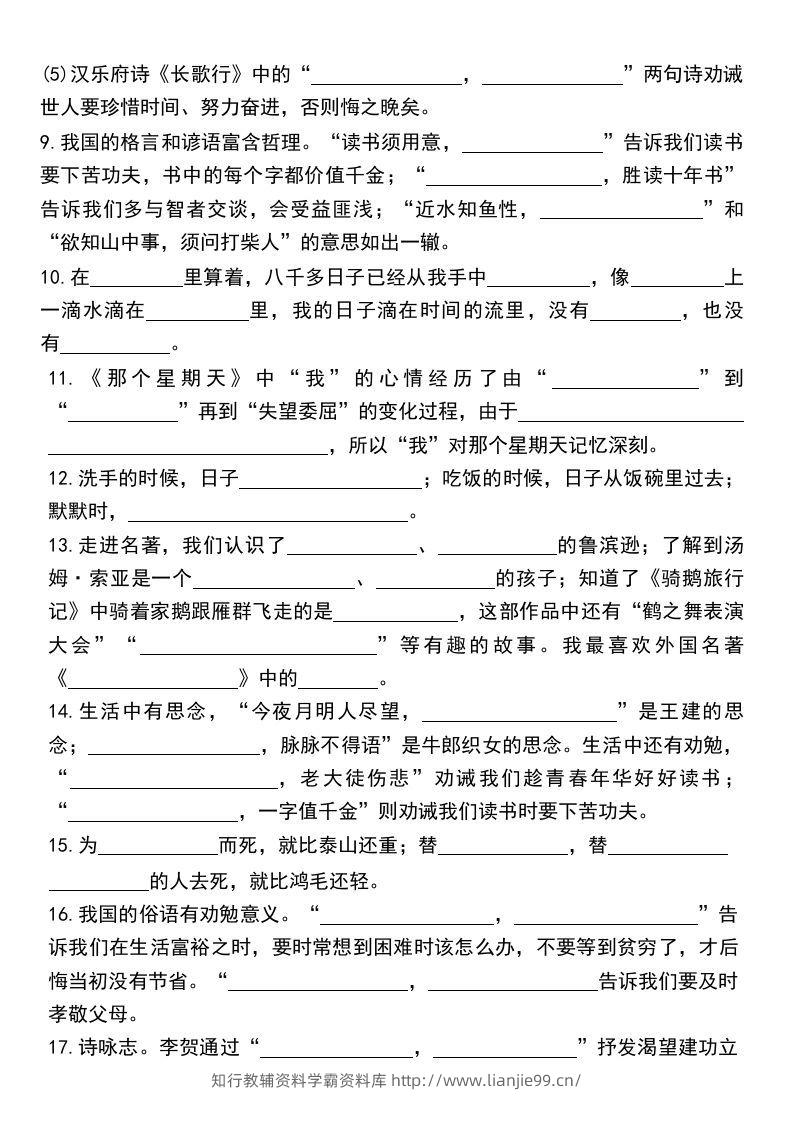 (5)汉乐府诗《长歌行》中的“______，______”两句诗劝诫
世人要珍惜时间、努力奋进，否则悔之晚矣。
9.我国的格言和谚语富含哲理。“读书须用意，______”告诉我们读书
要下苦功夫，书中的每个字都价值千金；“______，胜读十年书”
告诉我们多与智者交谈，会受益匪浅；“近水知鱼性，______”和
“欲知山中事，须问打柴人”的意思如出一辙。
10.在______里算着，八千多日子已经从我手中______，像______上
一滴水滴在______里，我的日子滴在时间的流里，没有______，也没
有______。
11.《那个星期天》中“我”的心情经历了由“______”到
“______”再到“失望委屈”的变化过程，由于______
______，所以“我”对那个星期天记忆深刻。
12.洗手的时候，日子______；吃饭的时候，日子从饭碗里过去；
默默时，______。
13.走进名著，我们认识了______、______的鲁滨逊；了解到汤
姆·索亚是一个______、______的孩子；知道了《骑鹅旅行
记》中骑着家鹅跟雁群飞走的是______，这部作品中还有“鹤之舞表演
大会”“______”等有趣的故事。我最喜欢外国名著
《______》中的______。
14.生活中有思念，“今夜月明人尽望，______”是王建的思
念；______，脉脉不得语”是牛郎织女的思念。生活中还有劝勉，
“______，老大徒伤悲”劝诫我们趁青春年华好好读书；
“______，一字值千金”则劝诫我们读书时要下苦功夫。
15.为______而死，就比泰山还重；替______，替______
______的人去死，就比鸿毛还轻。
16.我国的俗语有劝勉意义。“______，______”告
诉我们在生活富裕之时，要时常想到困难时该怎么办，不要等到贫穷了，才后
悔当初没有节省。“______，______告诉我们要及时
孝敬父母。
17.诗咏志。李贺通过“______，______”抒发渴望建功立
知行教辅资料学霸资料库 http://www.lianjie99.cn/